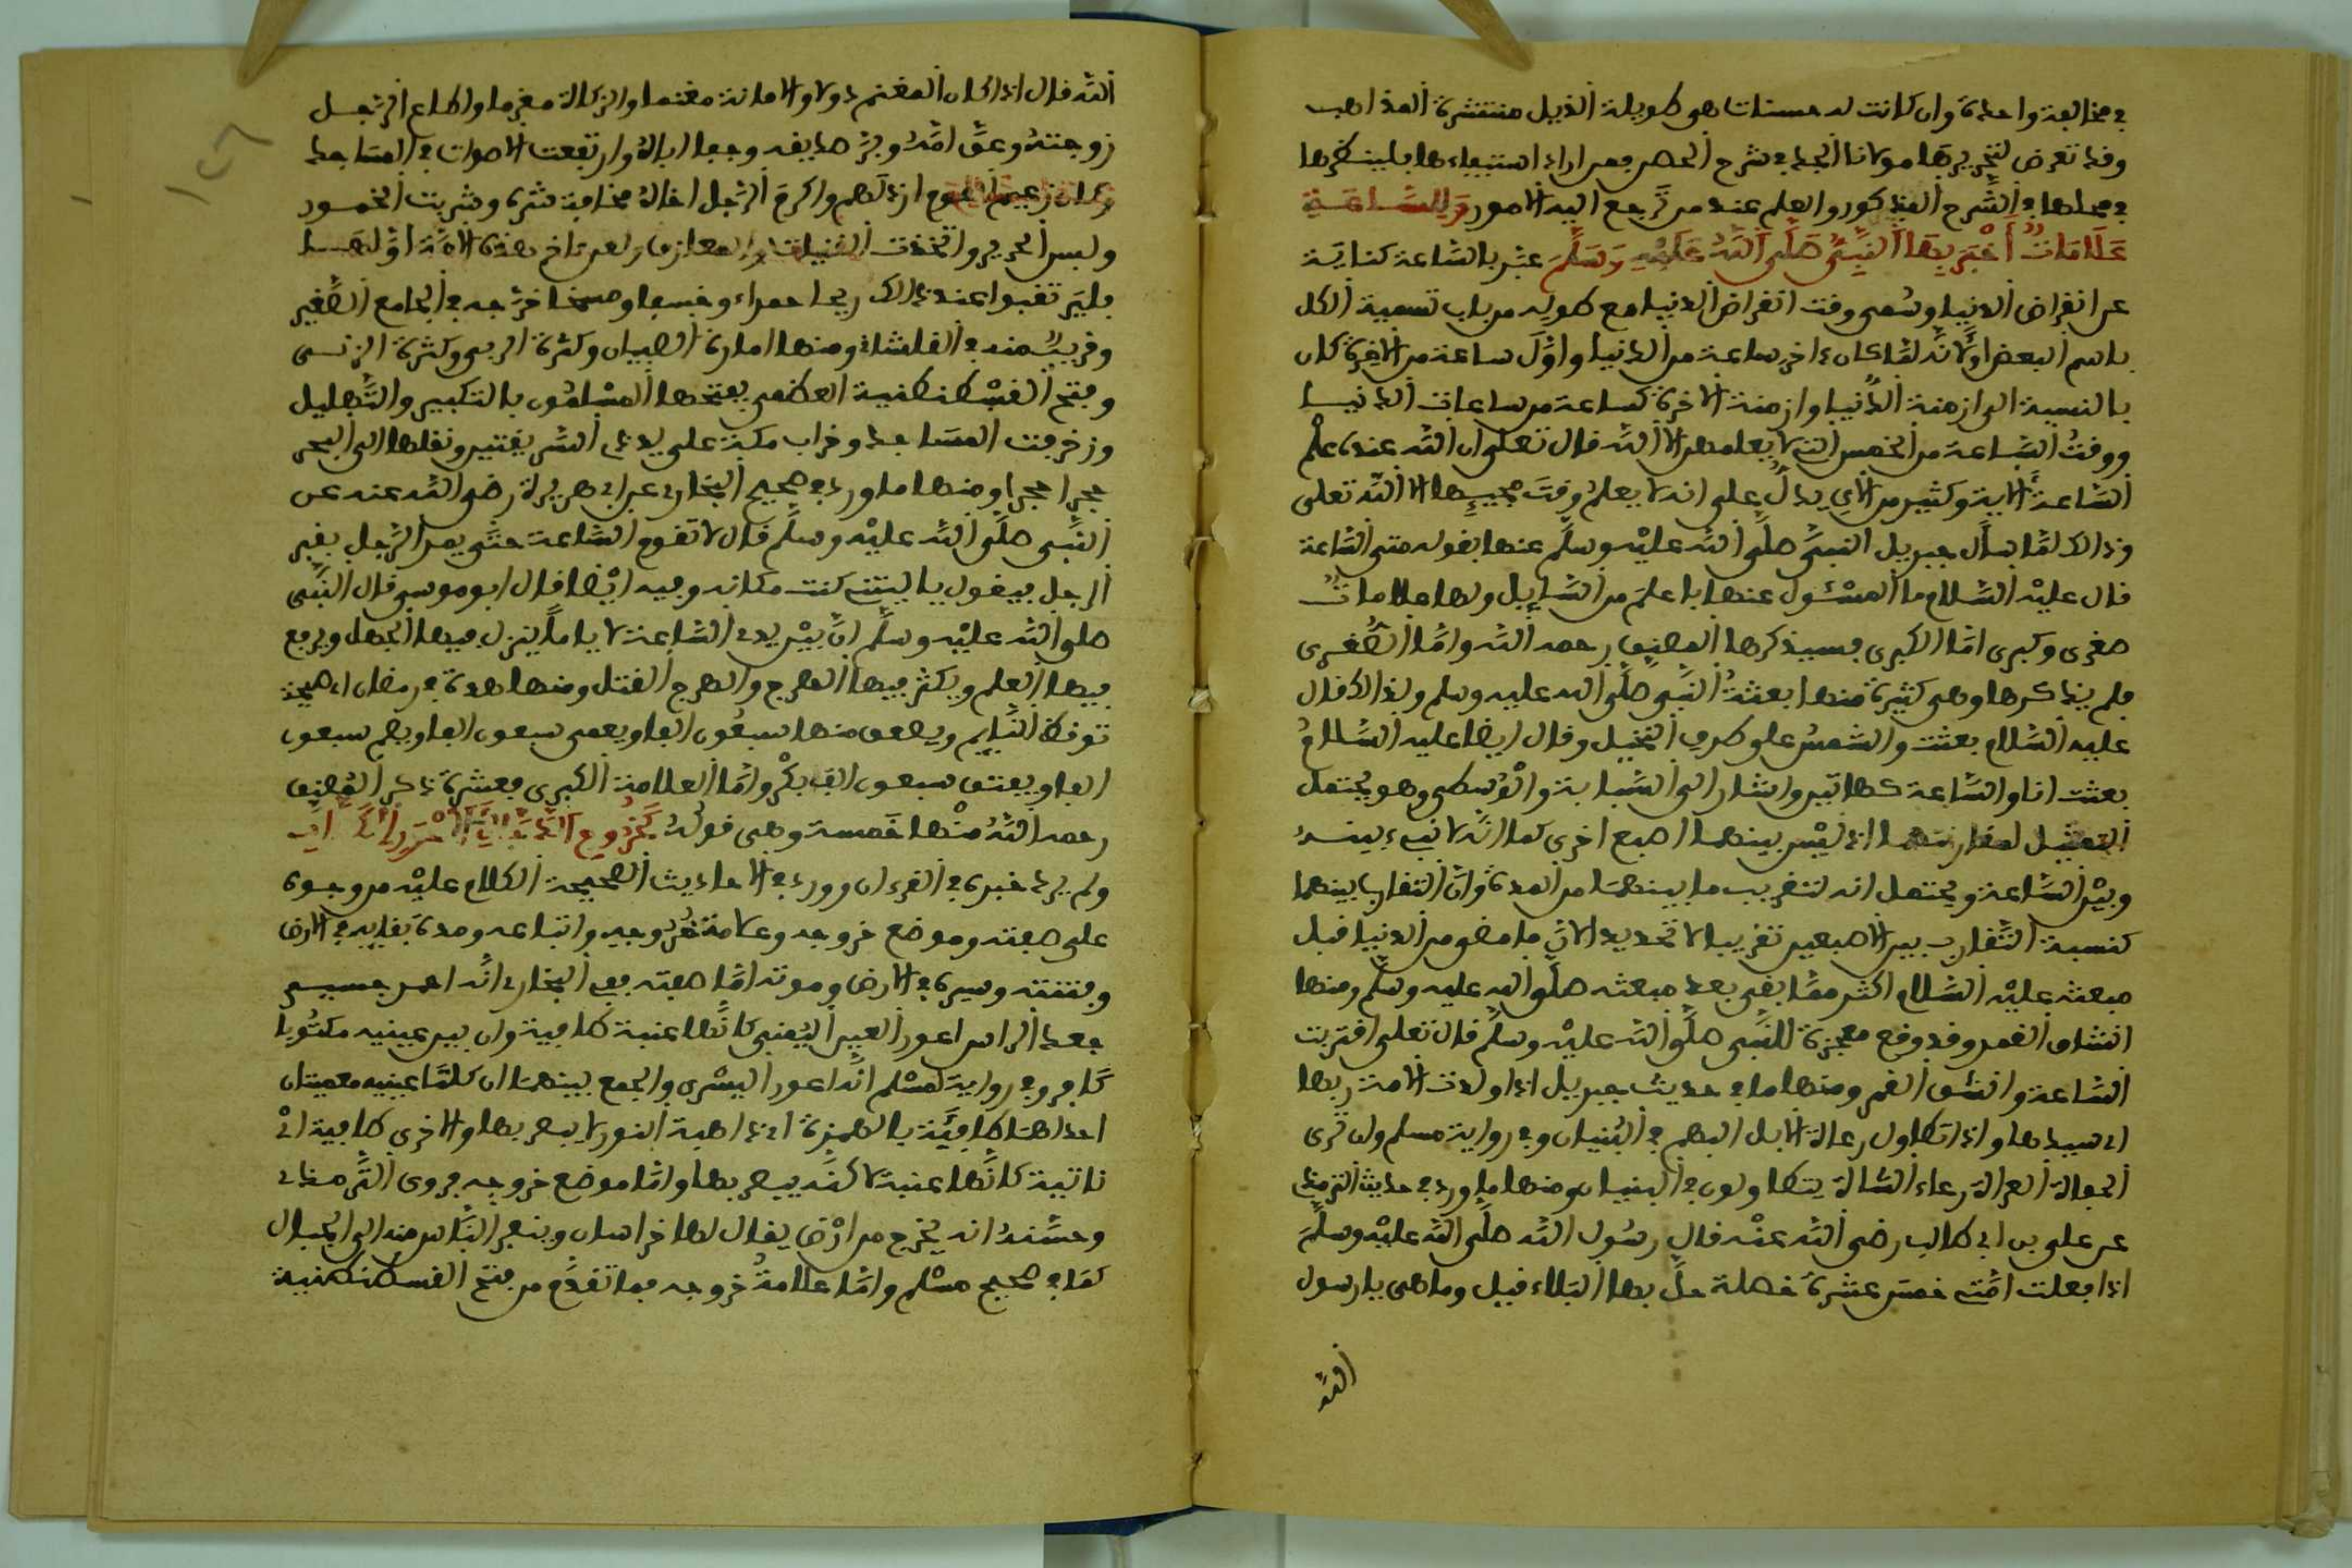 في مخالفة واحدة وان كانت له حسنات هي طويلة الذيل منتشرة المذاهب
وقد تعرض لتحريرها مولانا الجد في شرح الحصن فمن اراد استيفاءها فلينظرها
في محلها في الشرح المذكور والعلم عند من ترجع اليه الامور وللساعة
علامات أخبر بها النبيء صلى الله عليه وسلم عبر بالساعة كناية
عن انقراض الدنيا وسمى وقت انقراض الدنيا مع طوله من باب تسمية الكل
باسم البعض او لأنه لما كان ءاخر ساعة من الدنيا واول ساعة من الاخرة كان
بالنسبة الى ازمنة الدنيا وازمنة الاخرة كساعة من ساعات الدنيا
ووقت الساعة من الخمس التي لا يعلمهن الا الله قال تعلى ان الله عنده علم
الساعة الاية وكثير من الاي يدل على انه لا يعلم وقت مجيئها الا الله تعلى
وذالك لما سأل جبريل النبيء صلى الله عليه وسلم عنها بقوله متى الساعة
قال عليه السلام ما المسئول عنها باعلم من السايل ولها علامات
صغرى وكبرى اما الكبرى فسيذكرها المصنف رحمه الله واما الصغرى
فلم يذكرها وهي كثيرة منها بعثة النبي صلى الله عليه وسلم ولذالك قال
عليه السلام بعثت والشمس على طرف النخيل وقال ايضا عليه السلام
بعثت انا والساعة كهاتين واشار الى السبابة والوسطى وهو يحتمل
التمثيل لمقارنتهما اذ ليس بينهما اصبع اخرى كما انه لا نبيء بينه
وبين الساعة ويحتمل انه لتقريب ما بينهما من المدة وان التقارب بينهما
كنسبة التقارب بين الاصبعين تقريبا لا تحديدا لان ما مضى من الدنيا قبل
مبعثه عليه السلام اكثر مما بقي بعد مبعثه صلى الله عليه وسلم ومنها
انشقاق القمر وقد وقع معجزة للنبي صلى الله عليه وسلم قال تعلى اقتربت
الساعة وانشق القمر ومنها ما في حديث جبريل اذا ولدت الامة ربها
اي سيدها واذا تطاول رعاة الابل البهم في البنيان وفي رواية مسلم وان ترى
الحفاة العراة رعاء الشاة يتطاولون في البنيان ومنها ما ورد في حديث الترمذي
عن علي بن ابي طالب رضي الله عنه قال رسول الله صلى الله عليه وسلم
اذا فعلت امتي خمس عشرة خصلة حل بها البلاء قيل وما هي يا رسول
الله قال اذا كان المغنم دولا والامانة مغنما والزكاة مغرما واطاع الرجل
زوجته وعق امه وبر صديقه وجفا اباه وارتفعت الاصوات في المساجد
وكان زعيم القوم ارذلهم واكرم الرجل اخاه مخافة شره وشربت الخمور
ولبس الحرير واتخذت القينات والمعازف ولعن ءاخر هذه الامة اولها
فليرتقبوا عند ذالك ريحا حمراء وخسفا ومسخا خرجه في الجامع الصغير
وقريب منه في القلشاني ومنها امارة الصبيان وكثرة الربى وكثرة الزنى
وفتح القسطنطنية العظمى يفتحها المسلمون بالتكبير والتهليل
وزخرفت المساجد وخراب مكة على يد ذي السويقتين ونقلها الى البحر
حجرا حجرا ومنها ما ورد في صحيح البخاري عن ابي هريرة رضي الله عنه عن
النبي صلى الله عليه وسلم قال لا تقوم الساعة حتى يمر الرجل بقبر
الرجل فيقول يا ليتني كنت مكانه وفيه ايضا قال ابو موسى قال النبي
صلى الله عليه وسلم ان بين يدي الساعة لاياما ينزل فيها الجهل ويرفع
فيها العلم ويكثر فيها الهرج والهرج القتل ومنها هدة في رمضان اي صيحة
توقظ النايم ويصعق منها سبعون الفا ويعمى سبعون الفا ويصم سبعون
الفا ويفتق سبعون الف بكر واما العلامة الكبرى فعشرة ذكر المصنف
رحمه الله منها خمسة وهي قوله كخروج الدجال
ولم يرد خبره في القرءان وورد في الاحاديث الصحيحة الكلام عليه من وجوه
على صفته وموضع خروجه وعلامة خروجه واتباعه ومدة بقايه في الارض
وفتنته وسيره في الارض وموته اما صفته ففي البخاري انه احمر جسيم
جعد الراس اعور العين اليمنى كانها عنبة طافية وان بين عينيه مكتوبا
كافر وفي رواية لمسلم انه اعور اليسرى والجمع بينهما ان كلتا عينيه معيبتان
احداهما طافئة بالهمزة اي ذاهبة النور لا يبصر بها والاخرى طافية اي
ناتية كانها عنبة لاكنه يبصر بها واما موضع خروجه فروى الترمذي
وحسنه انه يخرج من ارض يقال لها خراسان وينفر الناس منه الى الجبال
كما في صحيح مسلم واما علامة خروجه فما تقدم من فتح القسطنطنية